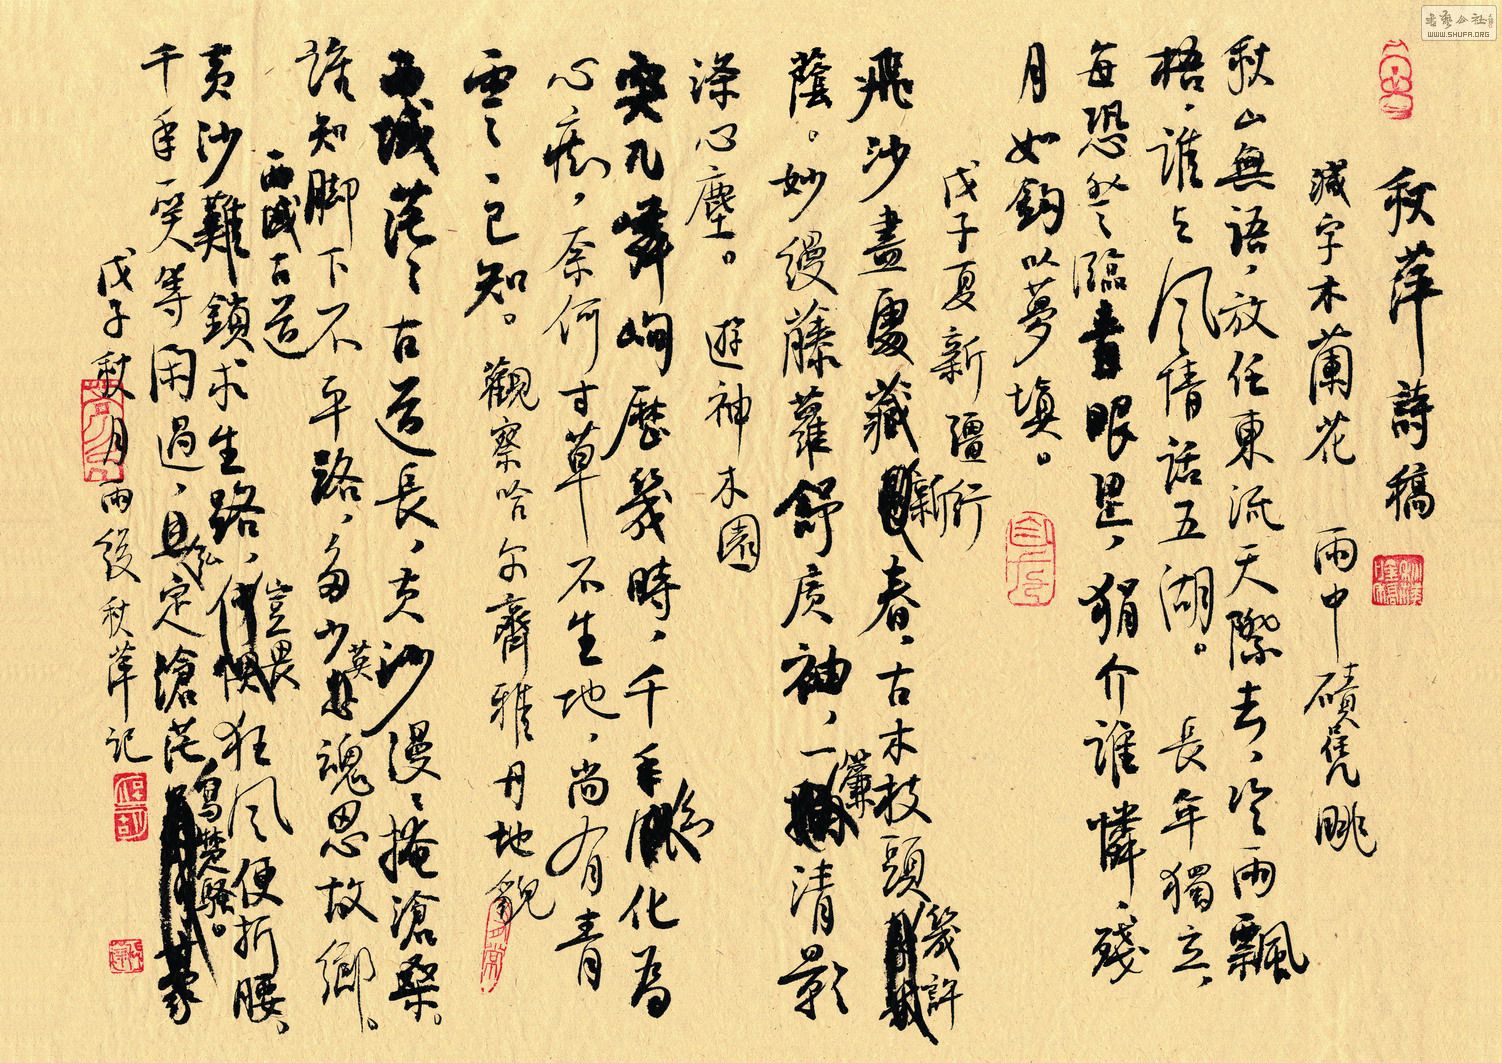 秋萍詩稿
減字木蘭花 雨中磧雋眺
秋山無語，放任東流天際去，冷雨飄
梧，誰與風情話五湖。 長年獨立，
每恐登臨書眼里，狷介誰憐，殘
月如鉤以夢填。
戊子夏新疆行
飛沙盡處藏新春，古木枝頭幾許
蔭。妙縵藤蘿舒廣袖，一簾清影
滌心塵。 遊神木園
突兀嶙峋歷幾時，千年化為
心痴，奈何寸草不生地，尚有青
雲已知。觀察哈尔齊雅丹地貌
西域茫々古道長，黃沙漫々掩滄桑。
誰知腳下不平路，多少英魂思故鄉。
西域古道
黃沙難鎖求生路，豈畏狂風便折腰，
千年一笑等閑過，定滄茫
戊子秋月兩段秋萍記
書藝公社
WWW.SHUFA.ORG